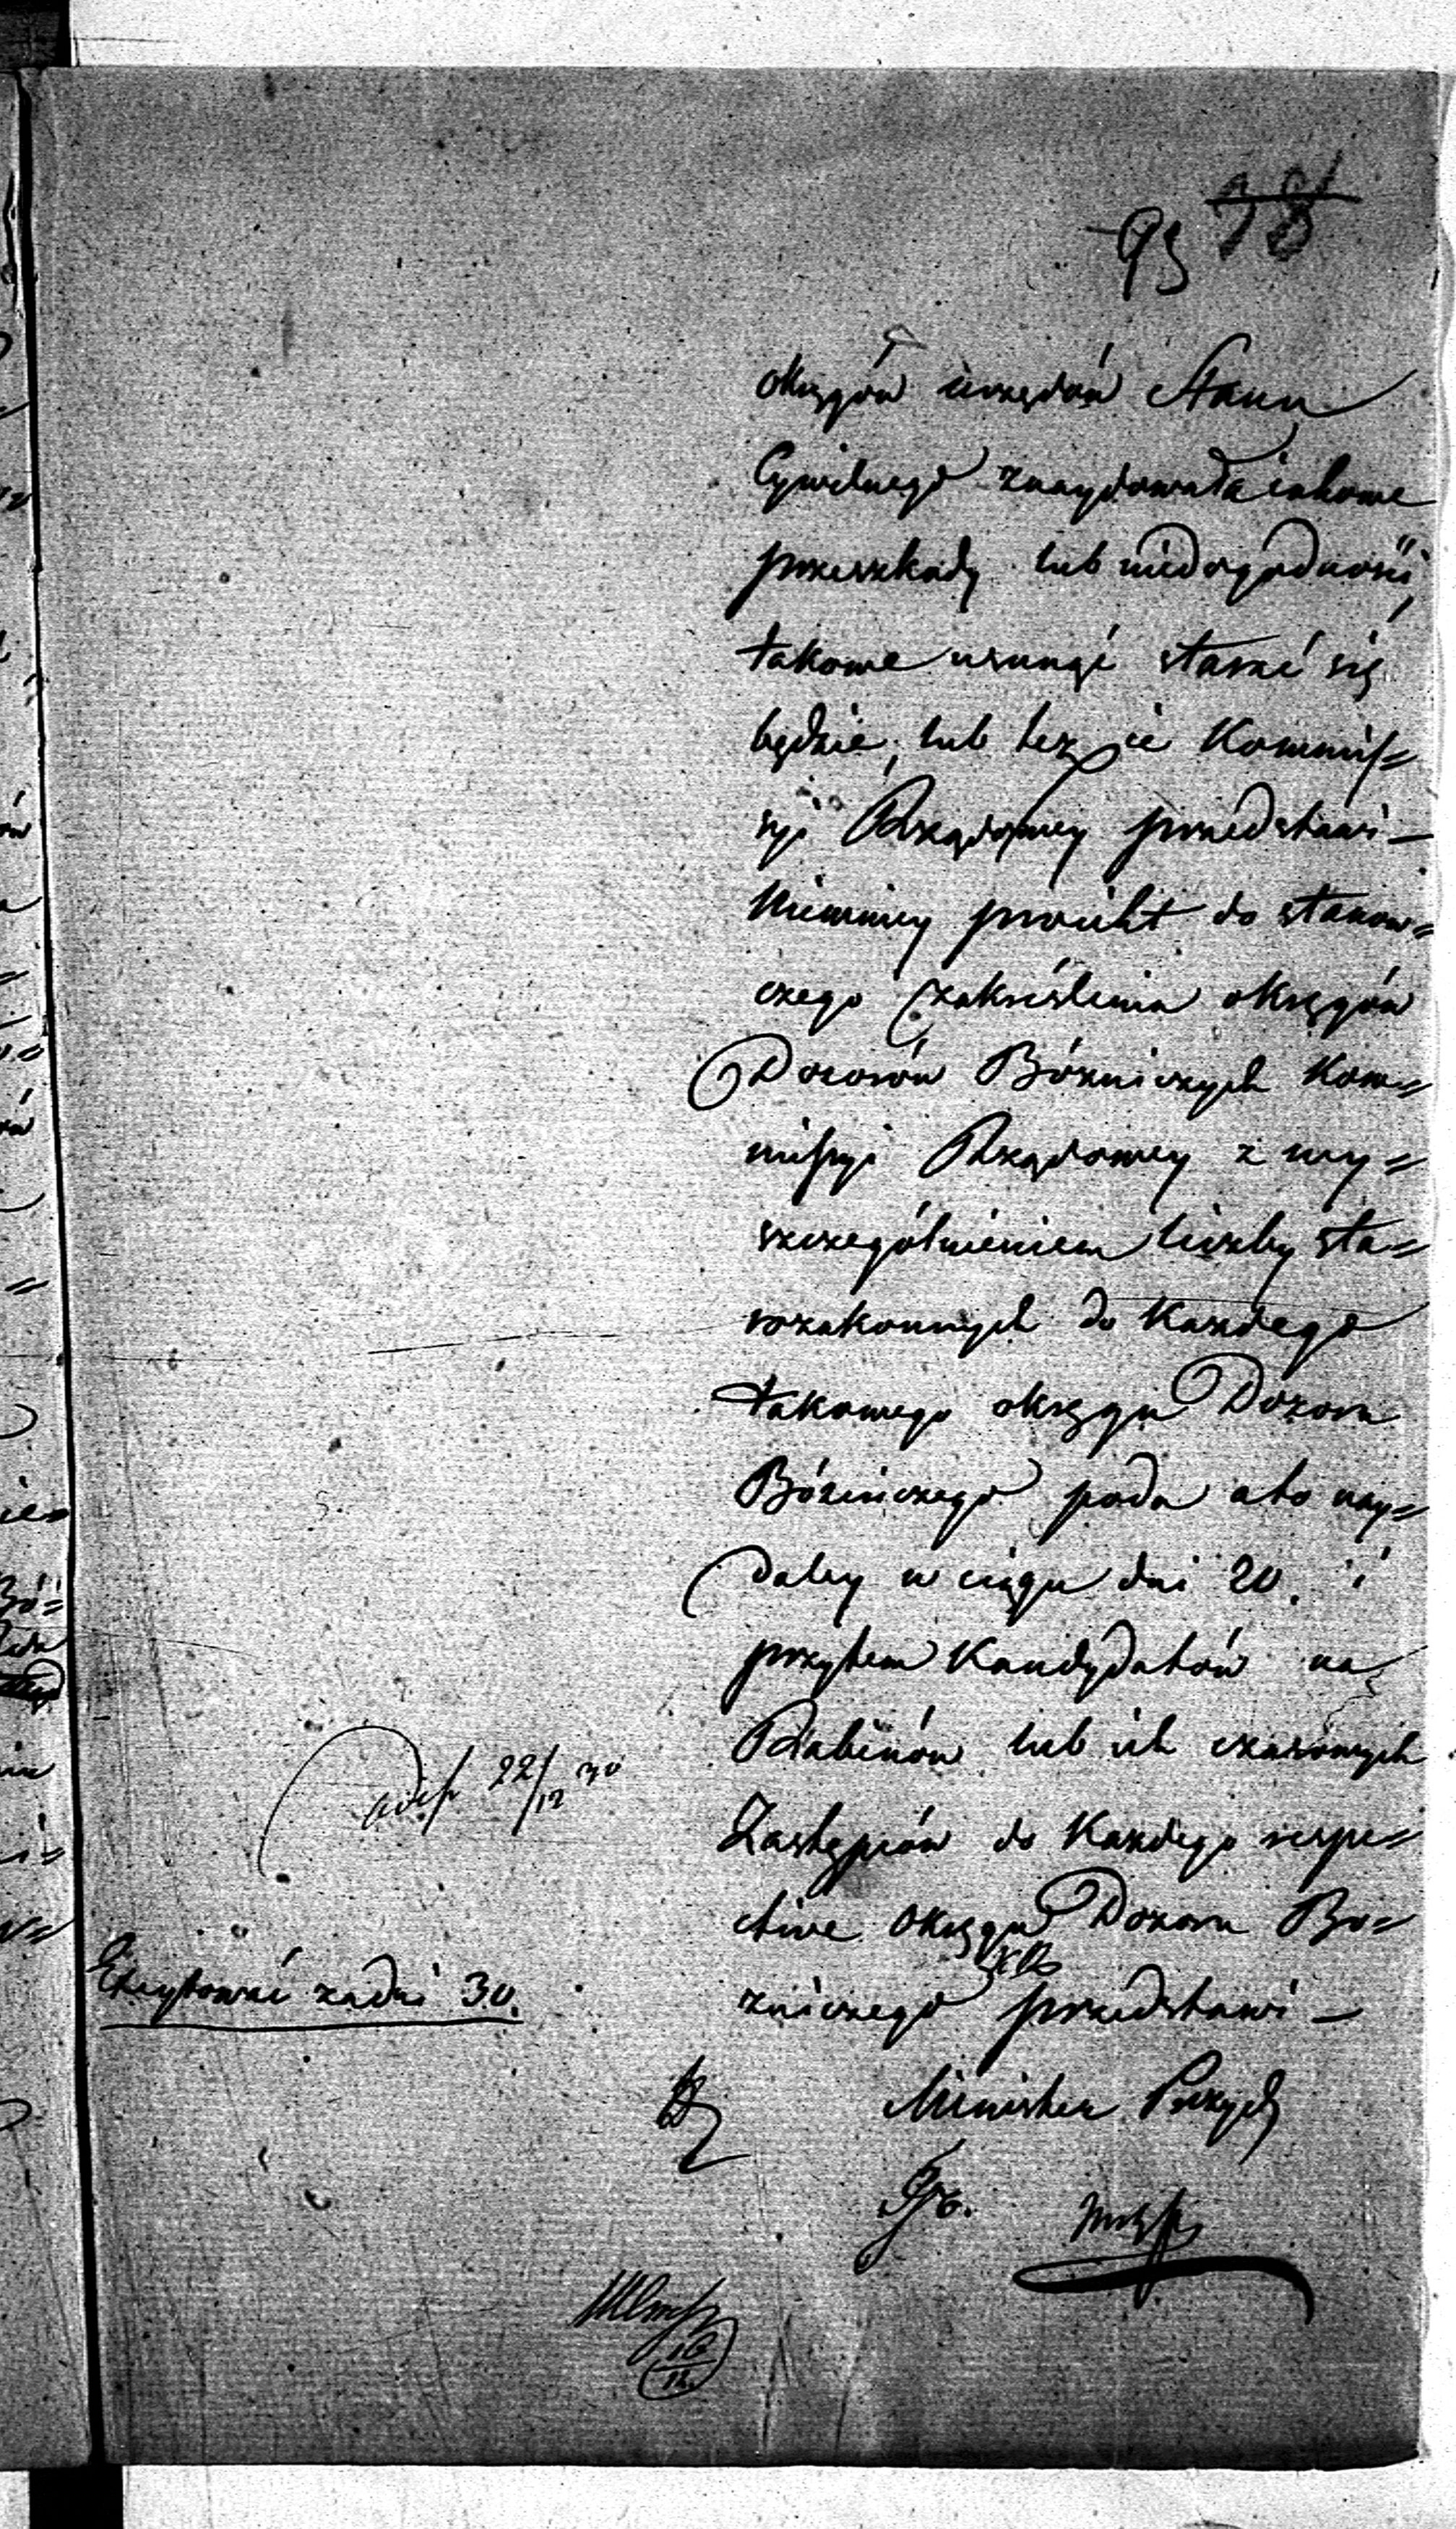 93 78
okręgów urzędów Stanu
Cywilnego znaydowała iakowe
przeszkody lub niedogodności
takowe usunąć starać się
będzie, lub też ie Kommis=
syi Rządowey przedstawi —
Niemniey proiekt do stanow=
czego zakreślenia okręgów
Dozorów Bóżniczych Kom=
missyi Rządowey z wy=
szczególnieniem liczby sta=
rozakonnych do Każdego
takowego okręgu Dozoru
Bóżniczego poda a to nay=
daley w ciągu dni 20. i
przytem Kandydatów na
Rabinów lub ich czasowych
Zastępców do Każdego respe=
ctive okręgu Dozoru Bó=
żniczego przedstawi —
22/12 30
Excytować za dni 30.
Minister Prezyd
16/12